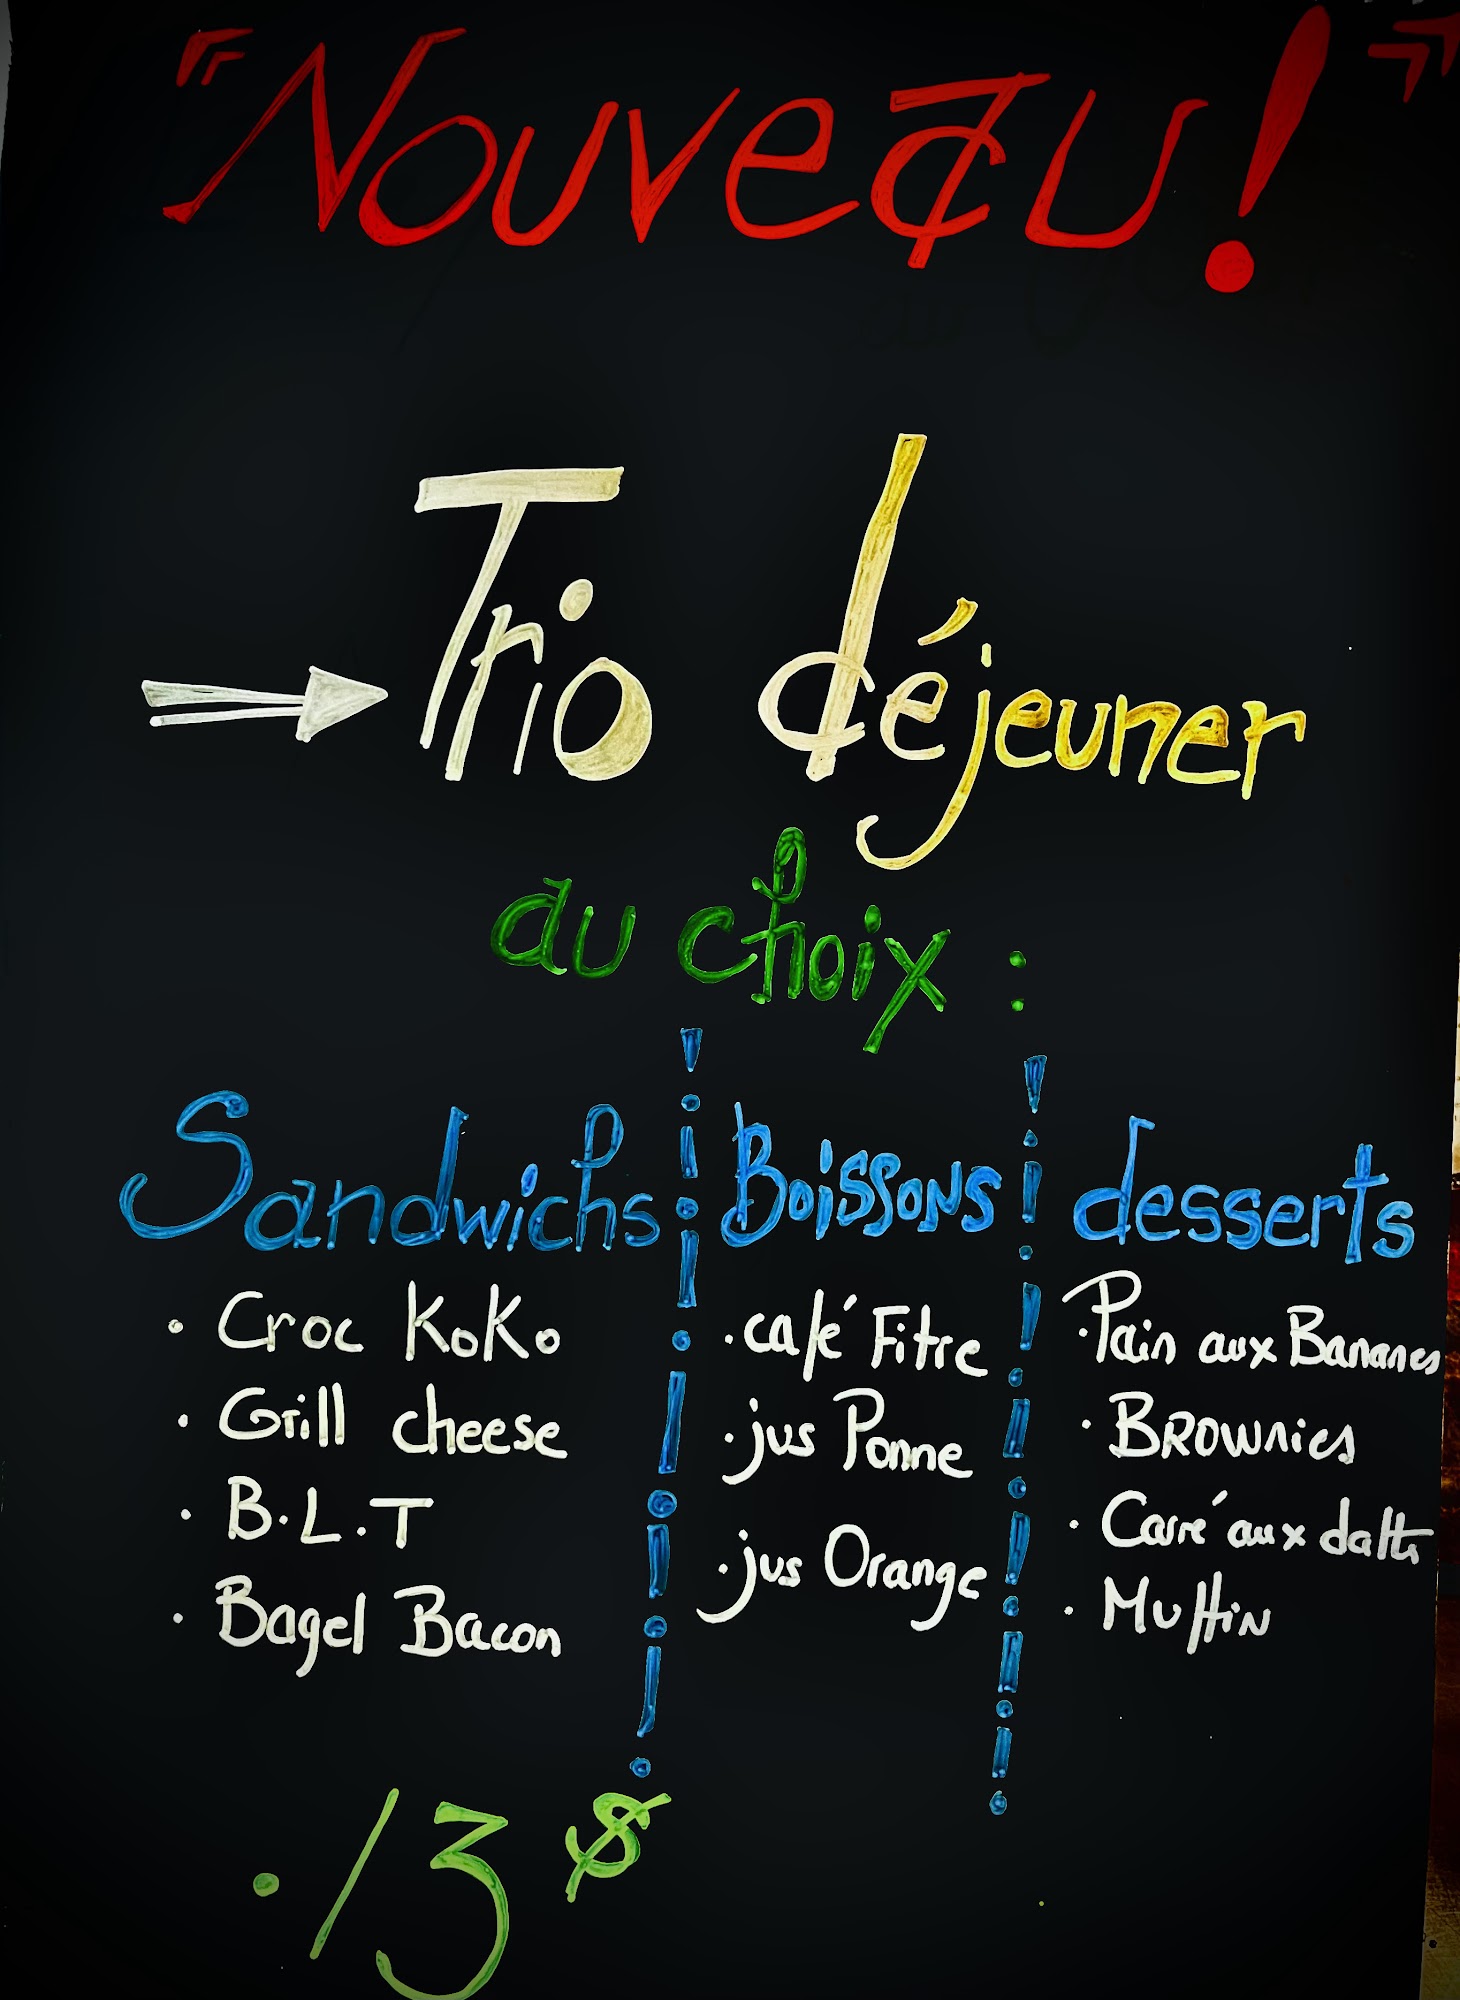 "Nouveau!"
Trio déjeuner
au choix :
Sandwichs
• Croc KoKo
• Grill cheese
• B.L.T
• Bagel Bacon
Boissons
• café Fitre
• jus Pomme
• jus Orange
desserts
• Pain aux Bananes
• BROWNies
• Carré aux dattes
• Muffin
• 13 $